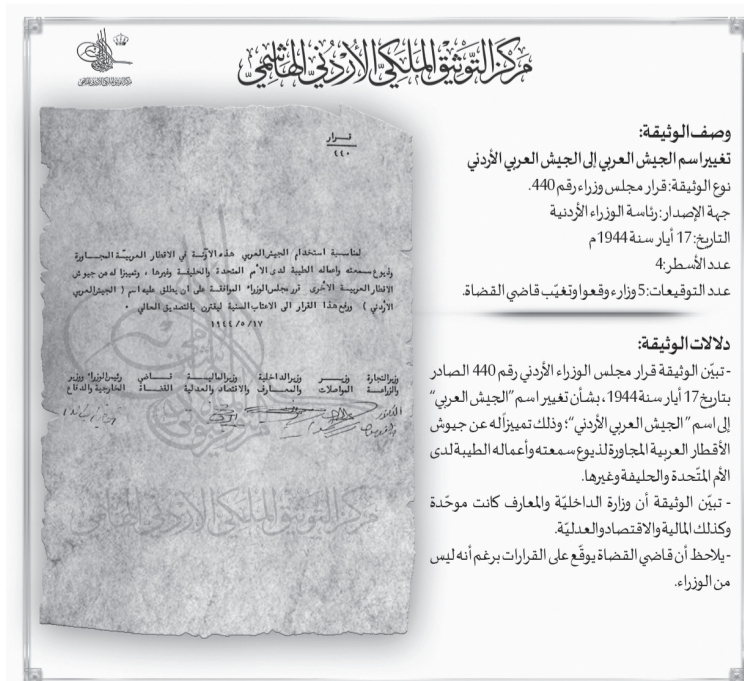 مركز التوثيق الملكي الأردني الهاشمي
وصف الوثيقة:
تغيير اسم الجيش العربي إلى الجيش العربي الأردني
نوع الوثيقة: قرار مجلس وزراء رقم 440.
جهة الإصدار: رئاسة الوزراء الأردنية
التاريخ: 17 أيار سنة 1944م
عدد الأسطر: 4
عدد التوقيعات: 5 وزراء وقعوا وتغيّب قاضي القضاة.
دلالات الوثيقة:
- تبيّن الوثيقة قرار مجلس الوزراء الأردني رقم 440 الصادر
بتاريخ 17 أيار سنة 1944، بشأن تغيير اسم "الجيش العربي"
إلى اسم "الجيش العربي الأردني"؛ وذلك تمييزاً له عن جيوش
الأقطار العربية المجاورة لذيوع سمعته وأعماله الطيبة لدى
الأمم المتّحدة والحليفة وغيرها.
- تبيّن الوثيقة أن وزارة الداخليّة والمعارف كانت موحّدة
وكذلك المالية والاقتصاد والعدليّة.
- يلاحظ أن قاضي القضاة يوقّع على القرارات برغم أنه ليس
من الوزراء.
قرار
٤٤٠
لمناسبة استخدام الجيش العربي هذه الآونة في الاقطار العربية المجاورة
ولذيوع سمعته واعماله الطيبة لدى الأمم المتحدة والحليفة وغيرها، وتمييزا له عن جيوش
الاقطار العربية الاخرى. قرر مجلس الوزراء الموافقة على أن يطلق عليه اسم ( الجيش العربي
الأردني ) ورفع هذا القرار الى الاعتاب السنية ليقترن بالتصديق العالي .
١٩٤٤/٥/١٧
رئيس الوزراء ووزير قاضي وزير المالية وزير الداخلية وزير وزير التجارة
الخارجية والدفاع القضاة والاقتصاد والعدلية والمعارف المواصلات والزراعة
مركز التوثيق الملكي الأردني الهاشمي